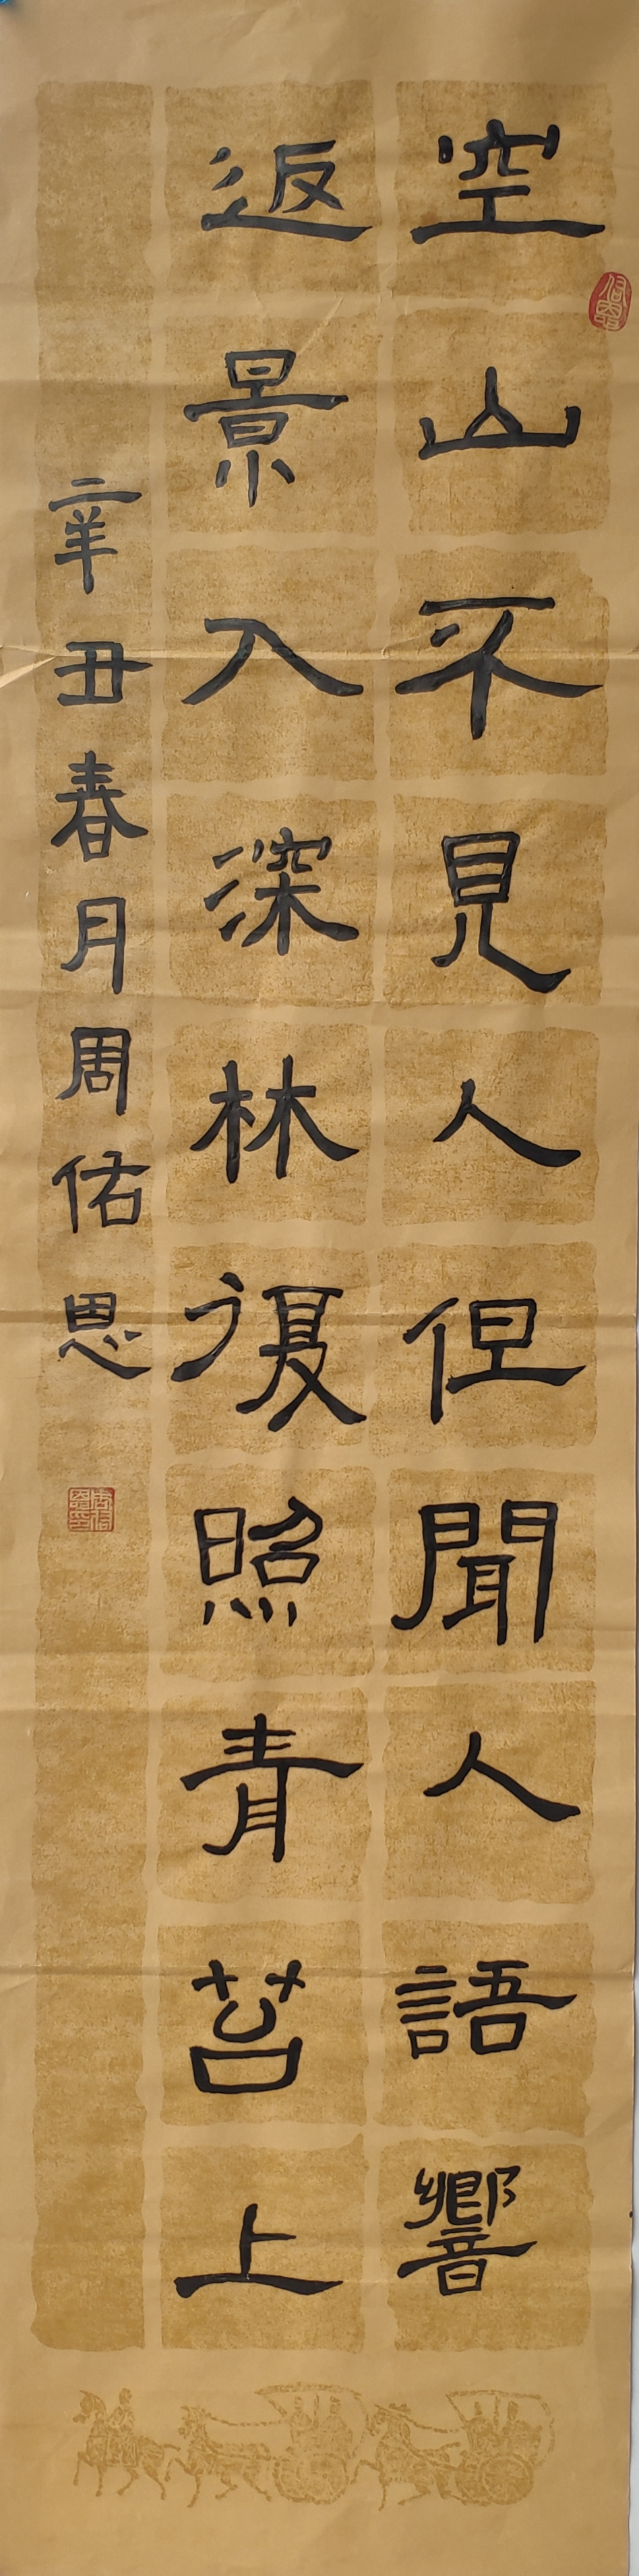 空山不見人但聞人語響
返景入深林復照青苔上
辛丑春月周佑恩